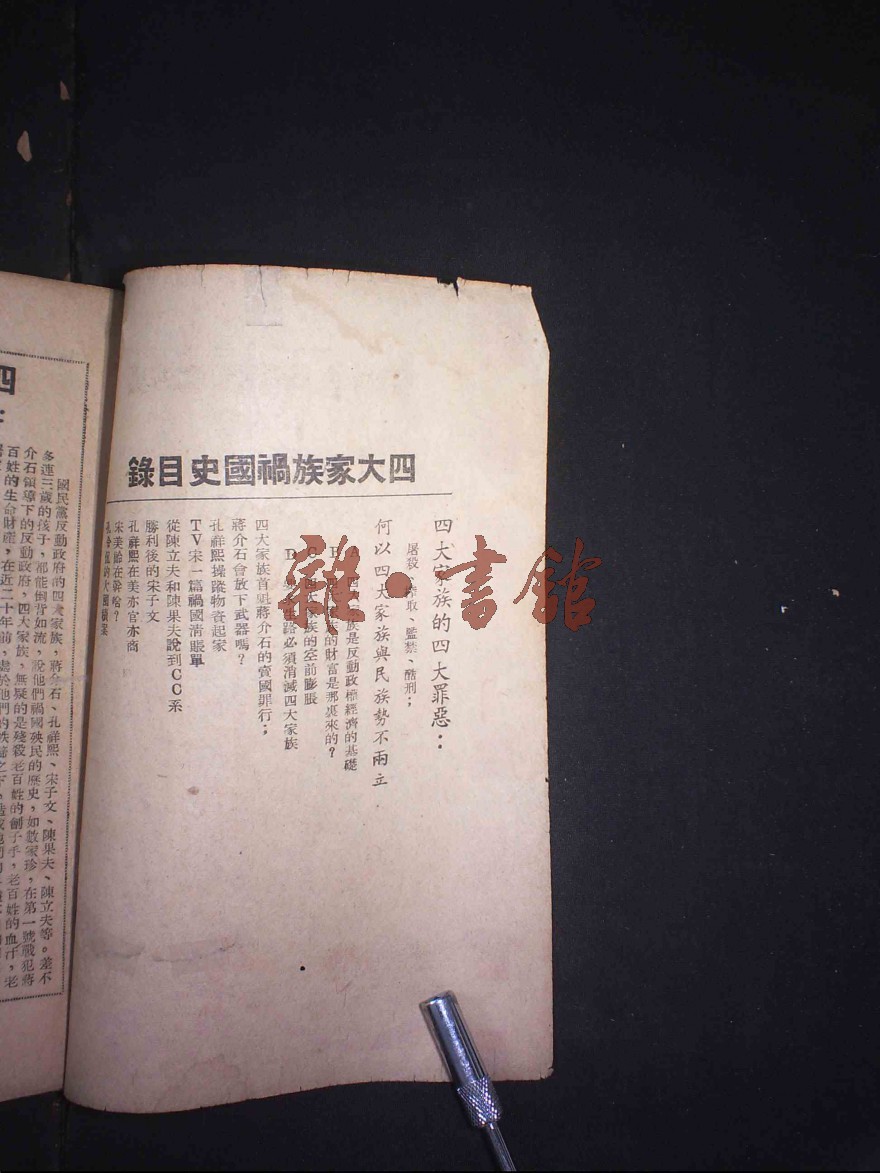 四大家族禍國史目錄
四大家族的四大罪惡：
屠殺、榨取、監禁、酷刑；
何以四大家族與民族勢不兩立
A 四大家族是反動政權經濟的基礎
B 四大家族的財富是那裏來的？
C 四大家族的空前膨脹
D 生路必須消滅四大家族
四大家族首魁蔣介石的賣國罪行；
蔣介石會放下武器嗎？
孔祥熙操蹤物資起家
TV宋一篇禍國清賬單
從陳立夫和陳果夫說到CC系
勝利後的宋子文
孔祥熙在美亦官亦商
宋美齡在幹啥？
的大
四
國民黨反動政府的四大家族，蔣介石、孔祥熙、宋子文、陳果夫、陳立夫等。差不
多連三歲的孩子，都能倒背如流，說他們禍國殃民的歷史，如數家珍，在第一號戰犯蔣
介石領導下的反動政府，四大家族，無疑的是殘殺老百姓的劊子手，老百姓的血汗，老
百姓的生命財產，在近二十年前，處於他們的鉄蹄之下，
雜·書館